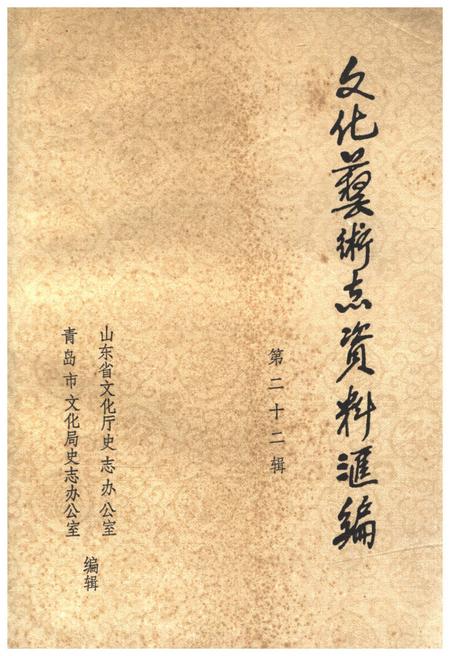 文化藝術志資料滙編
第二十二辑
山东省文化厅史志办公室
青岛市文化局史志办公室
编辑